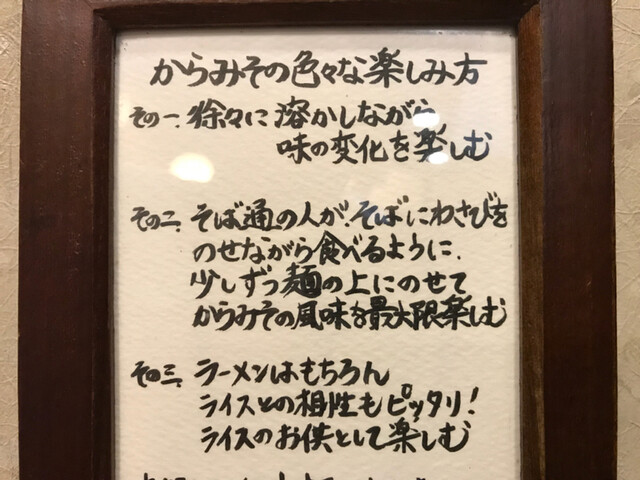 からみその色々な楽しみ方
その一、徐々に溶かしながら
味の変化を楽しむ
その二、そば通の人が、そばにわさびを
のせながら食べるように、
少しずつ麺の上にのせて
からみその風味を最大限楽しむ
その三、ラーメンはもちろん
ライスとの相性もピッタリ!
ライスのお供として楽しむ